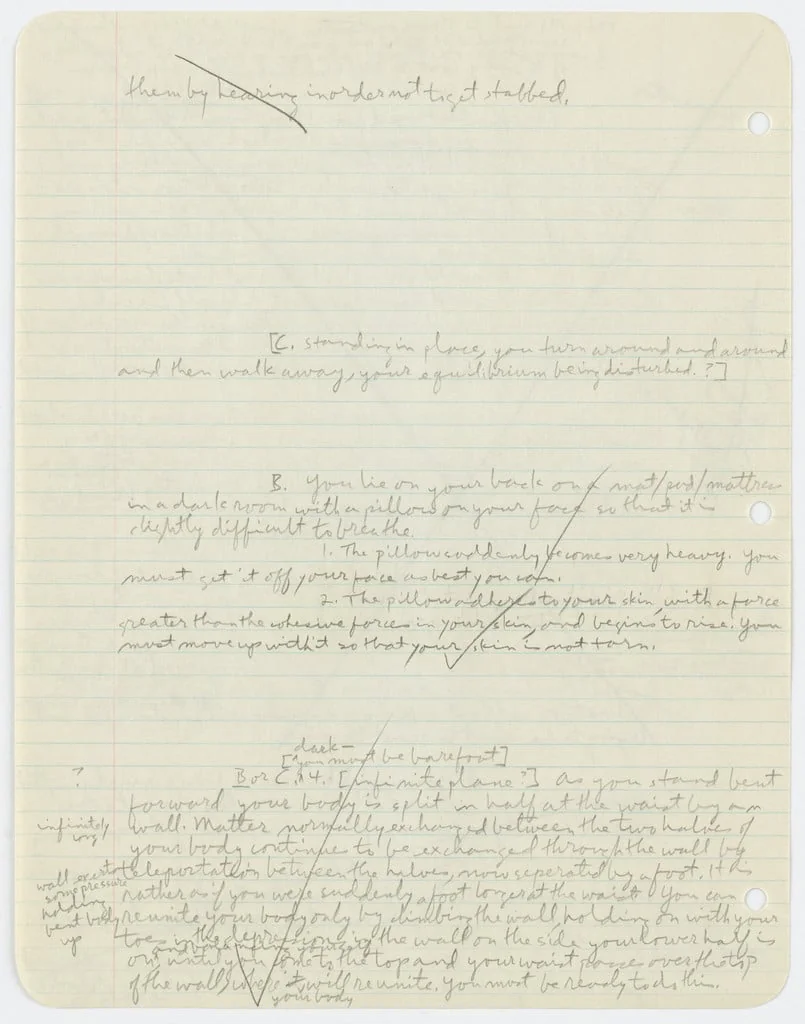 them by hearing in order not to get stabbed.
[C. standing in place, you turn around and around
and then walk away, your equilibrium being disturbed.?]
B. You lie on your back on a mat/pad/mattress
in a dark room with a pillow on your face so that it is
slightly difficult to breathe.
1. The pillow suddenly becomes very heavy. You
must get it off your face as best you can.
2. The pillow adheres to your skin, with a force
greater than the cohesive forces in your skin, and begins to rise. You
must move up with it so that your skin is not torn.
dark—
[you must be barefoot]
?
B or C. 4. [infinite plane?] As you stand bent
forward your body is split in half at the waist by an
infinitely
long
wall. Matter normally exchanged between the two halves of
your body continue to be exchanged through the wall by
teleportation between the halves, now seperated by a foot. It is
wall exerts
some pressure
holding
bent body
up
rather as if you were suddenly a foot longer at the waist. You can
reunite your body only by climbing the wall, holding on with your
toes in the depressions in the wall on the side your lower half is
on, until you come to the top and your waist passes over the top
of the wall, where it will reunite. You must be ready to do this.
your body